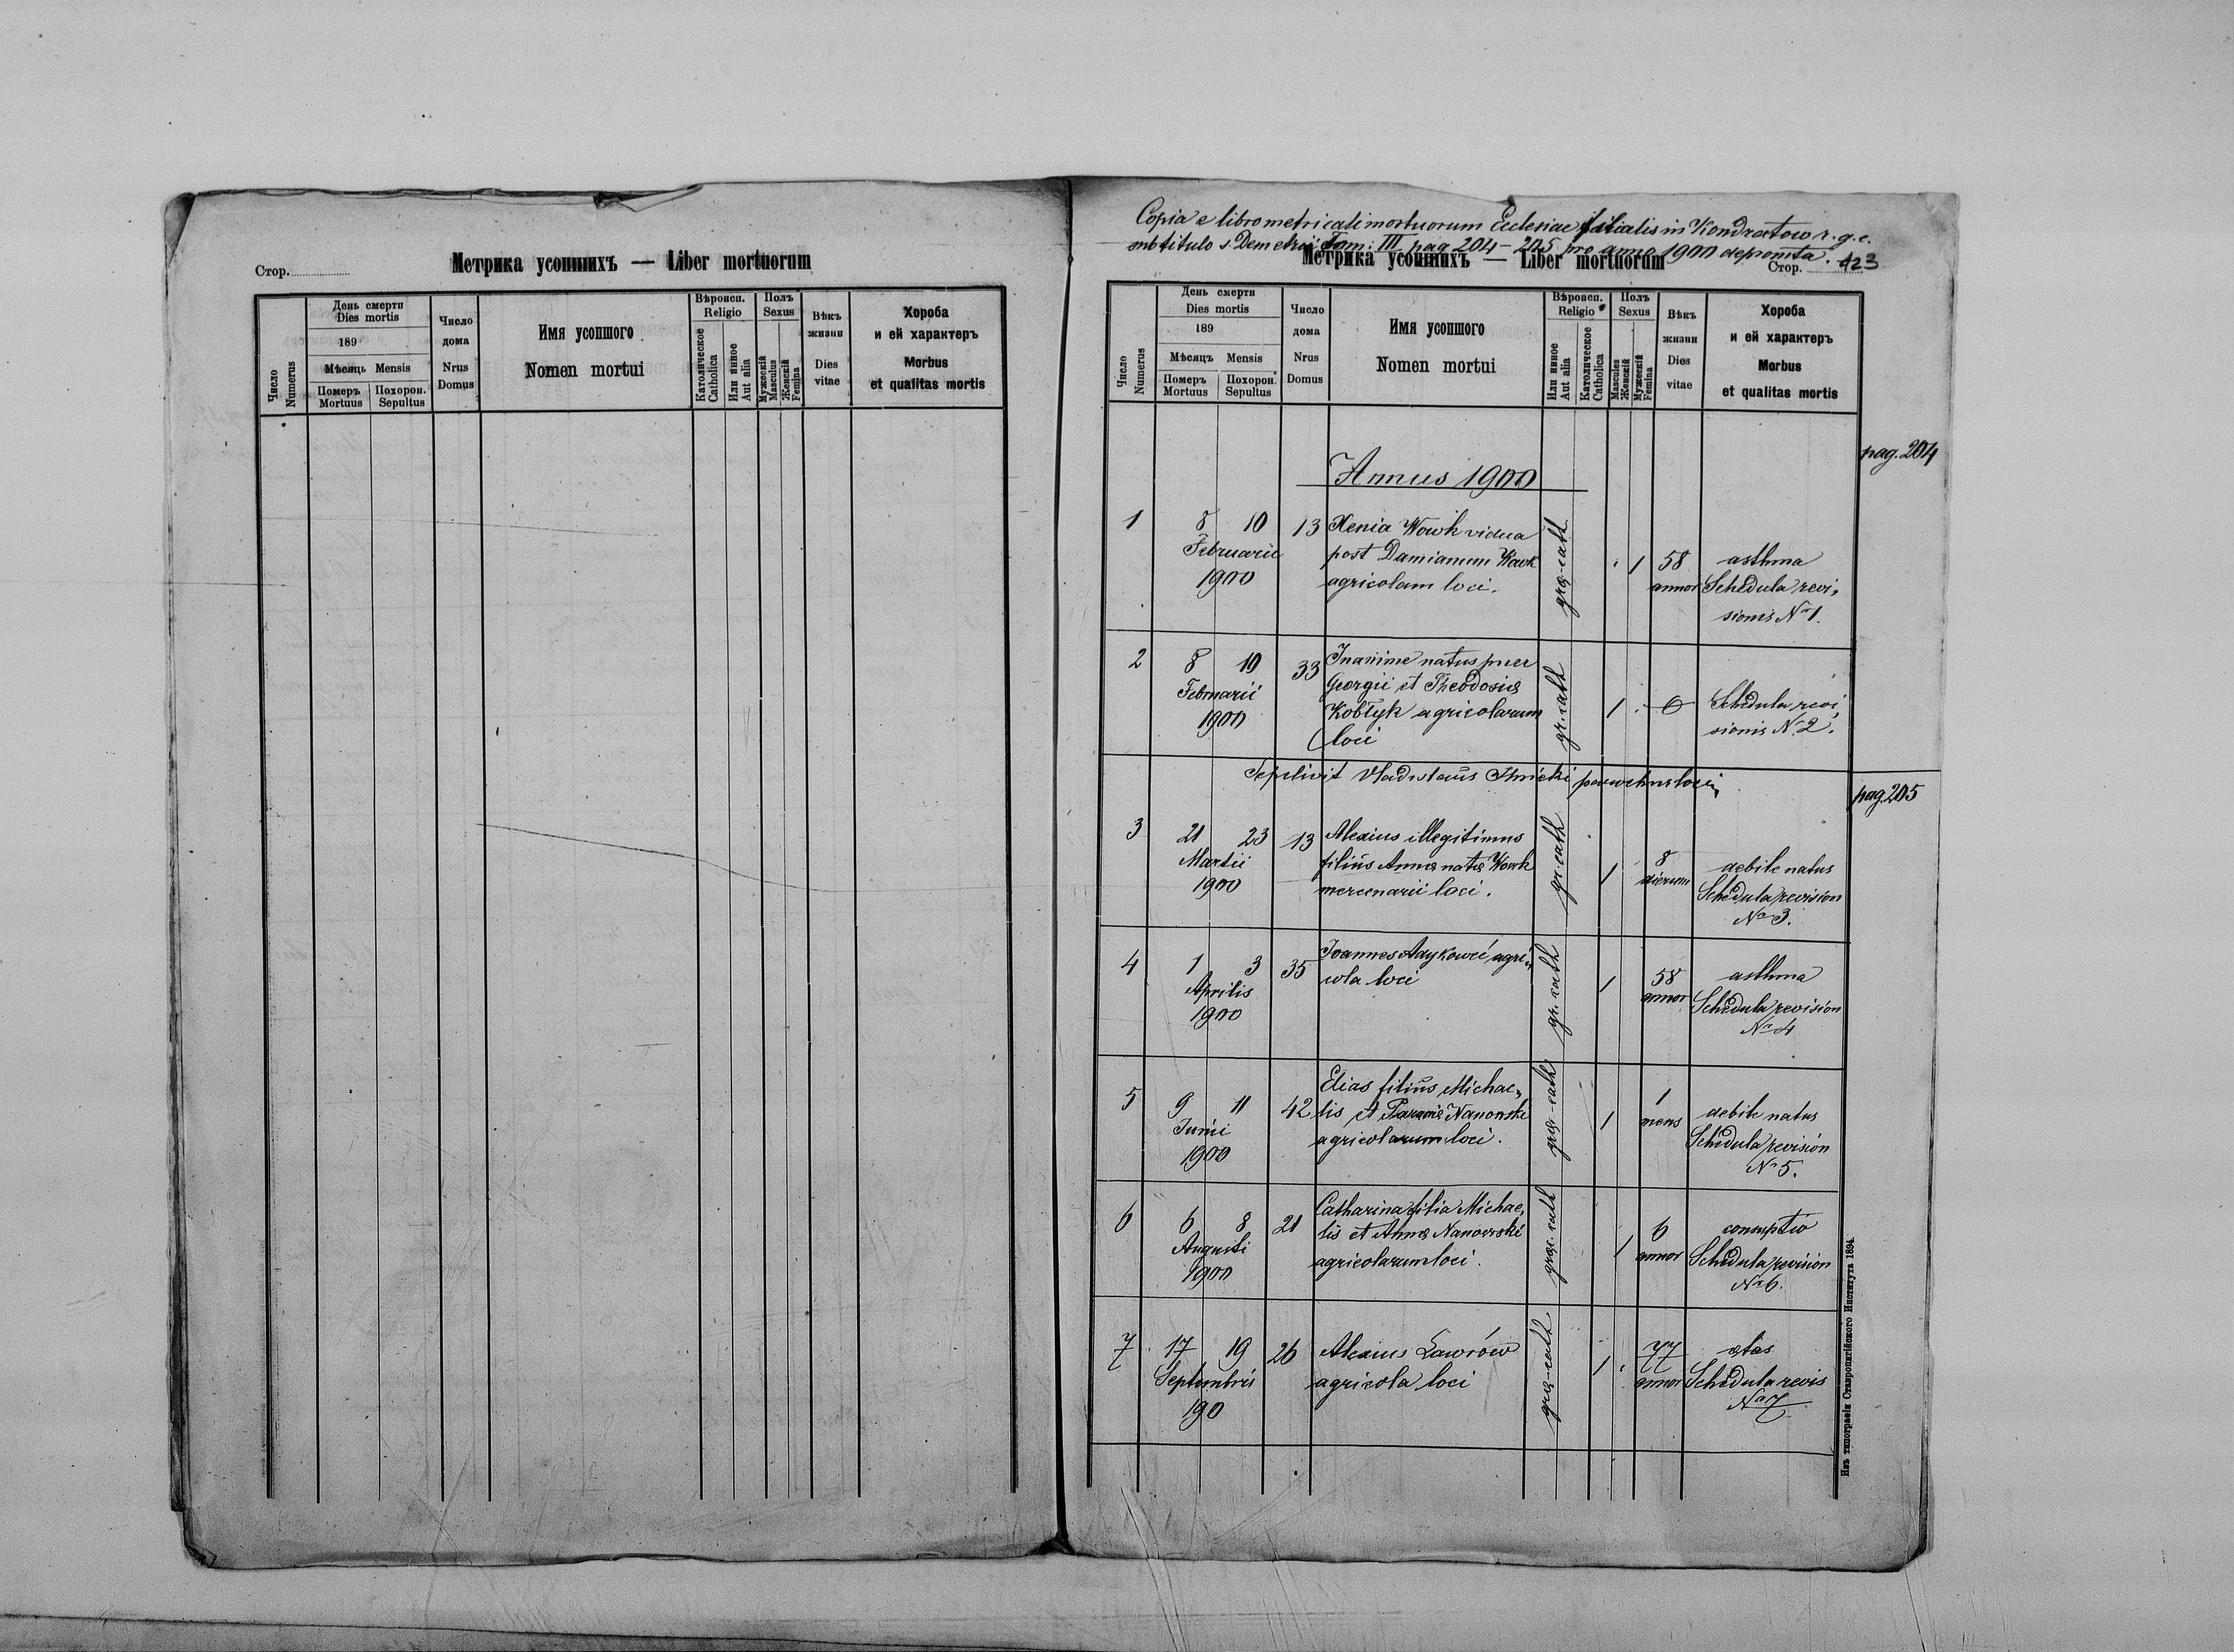 Стор.
Метрика усопшихъ — Liber mortuorum
Число
Numerus
День смерти
Dies mortis
189
Мѣсяць Mensis
Померъ
Mortuus
Похорон.
Sepultus
Число
дома
Nrus
Domus
Имя усопшого
Nomen mortui
Вѣроисп.
Religio
Католическое
Catholica
Или инное
Aut alia
Полъ
Sexus
Мужескій
Masculus
Женскій
Femina
Вѣкъ
жизни
Dies
vitae
Хороба
и ей характеръ
Morbus
et qualitas mortis
Copia e libro metricali mortuorum Ecclesiae filialis in Kondratow r. g. c.
sub titulo s. Demetrii Tom: III pag 204 - 205 pro anno 1900 depromta.
Метрика усопшихъ — Liber mortuorum
Стор. 423
Число
Numerus
День смерти
Dies mortis
189
Мѣсяцъ Mensis
Померъ
Mortuus
Похорон.
Sepultus
Число
дома
Nrus
Domus
Имя усопшого
Nomen mortui
Вѣроисп.
Religio
Или инное
Aut alia
Католическое
Catholica
Полъ
Sexus
Mascules
Женскій
Мужескій
Femina
Вѣкъ
жизни
Dies
vitae
Хороба
и ей характеръ
Morbus
et qualitas mortis
pag. 204
Annus 1900
1 8 10 13 Xenia Wowk vidua
Februarii post Damianum Wowk
1900 agricolam loci.
gr.-cath 1 58 asthma
annor Schedula revi,
sionis No 1.
2 8 10 33 Inanime natus puer
Februarii Georgii et Theodosiæ
1900 Kobłyk agricolarum
loci
gr. cath 1 Schedula revi,
sionis No 2.
Sepelivit Vladislaus Ilnicki parochus loci
pag. 205
3 21 23 13 Alexius illegitimus
Martii filius Annæ natæ Wowk
1900 mercenarii loci.
gr. cath 1 8 debile natus
dierum Schedula revision
No 3.
4 1 3 35 Joannes agri,
Aprilis cola loci
1900
gr. cath 1 58 asthma
annor Schedula revision
No 4
5 9 11 42 Elias filius Michae,
Junii lis et Nanowski
1900 agricolarum loci.
gr.-cath 1 1 debile natus
mens Schedula revision
No 5.
6 6 8 21 Catharina filia Michae,
Augusti lis et Annæ Nanowski
1900 agricolarum loci.
græc. cath 1 6 consumptio
annor Schedula revision
No 6.
7 17 19 26 Alexius Lawrów
Septembris agricola loci
190
græ-cath 1 77 ætas
annor Schedula revis
No 7
Изъ типографіи Ставропигійского Института 1894.